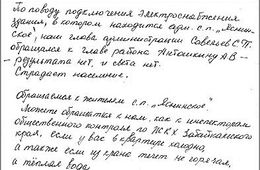 По поводу подключения электроснабжения
здания, в котором находится адм. с.п. "Яснин-
ское", наш глава администрации Савельев С.П.
обращался к главе района Антошкину А В –
– результата нет, и света нет.
Страдает население.
Обращаемся к жителям с.п. "Яснинское".
Можете обращаться к нам, как к инспекторам
общественного контроля по ЖКХ Забайкальского
края, если у вас в квартире холодно,
а также если из крана течет не горячая,
а тёплая вода